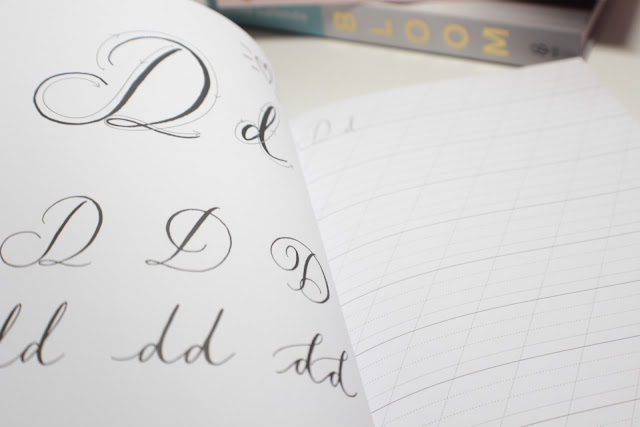 BLOOM
D d
D d
D D D
d d d d d